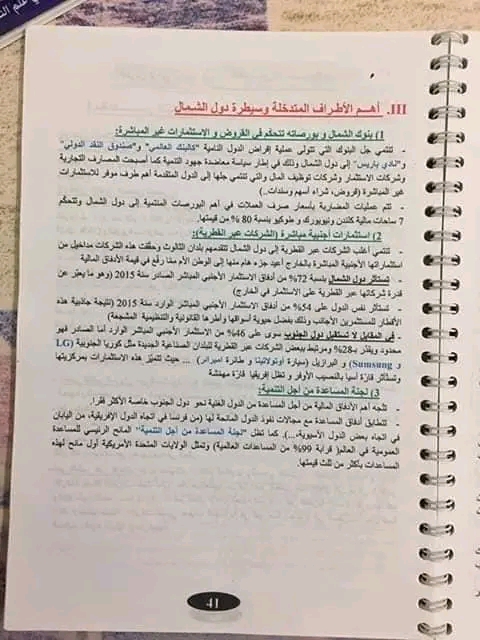 III. أهم الأطراف المتدخلة وسيطرة دول الشمال
1) بنوك الشمال و بورصاته تتحكم في القروض و الاستثمارات غير المباشرة:
- تنتمي جل البنوك التي تتولى عملية إقراض الدول النامية "كالبنك العالمي" و"صندوق النقد الدولي"
و"نادي باريس" إلى دول الشمال وذلك في إطار سياسة معاضدة جهود التنمية كما أصبحت المصارف التجارية
وشركات الاستثمار وشركات توظيف المال والتي تنتمي جلها إلى الدول المتقدمة أهم طرف موفر للاستثمارات
غير المباشرة (قروض، شراء أسهم وسندات..)
- تتم عمليات المضاربة بأسعار صرف العملات في أهم البورصات المنتمية إلى دول الشمال وتتحكم
7 ساحات مالية كلندن ونيويورك و طوكيو بنسبة 80 % من قيمتها.
2) استثمارات أجنبية مباشرة (الشركات عبر القطرية):
- تنتمي أغلب الشركات عبر القطرية إلى دول الشمال تتقدمهم بلدان الثالوث وحققت هذه الشركات مداخيل من
استثماراتها الأجنبية المباشرة بالخارج أعيد جزء هام منها إلى الوطن الأم مما رفع في قيمة الأدفاق المالية
- تستأثر دول الشمال بنسبة 72% من أدفاق الاستثمار الأجنبي المباشر الصادر سنة 2015 (وهو ما يعبر عن
قدرة شركاتها عبر القطرية على الاستثمار في الخارج)
- تستأثر نفس الدول على 54% من أدفاق الاستثمار الأجنبي الوارد سنة 2015 (نتيجة جاذبية هذه
الأقطار للمستثمرين الأجانب وذلك بفضل حيوية أسواقها وأطرها القانونية والتنظيمية المشجعة)
- في المقابل لا تستقبل دول الجنوب سوى على 46% من الاستثمار الأجنبي المباشر الوارد أما الصادر فهو
محدود ويقدر بـ28% ومرتبط ببعض الشركات عبر القطرية للبلدان الصناعية الجديدة مثل كوريا الجنوبية (LG
و Sumsung) و البرازيل (سيارة أوتولاتينا و طائرة امبراير) ... حيث تتميز هذه الاستثمارات بمركزيتها
وتستأثر قارة آسيا بالنصيب الأوفر و تظل إفريقيا قارة مهمشة
3) لجنة المساعدة من أجل التنمية:
- تتجه أهم الأدفاق المالية من أجل المساعدة من الدول الغنية نحو دول الجنوب خاصة الأكثر فقرا.
- تتطابق أدفاق المساعدة مع مجالات نفوذ الدول المانحة لها (من فرنسا في اتجاه الدول الإفريقية، من اليابان
في اتجاه بعض الدول الآسيوية،...). كما تظل "لجنة المساعدة من أجل التنمية" المانح الرئيسي للمساعدة
العمومية في العالم( قرابة 99% من المساعدات العالمية) وتمثل الولايات المتحدة الأمريكية أول مانح لهذه
المساعدات بأكثر من ثلث قيمتها.
41